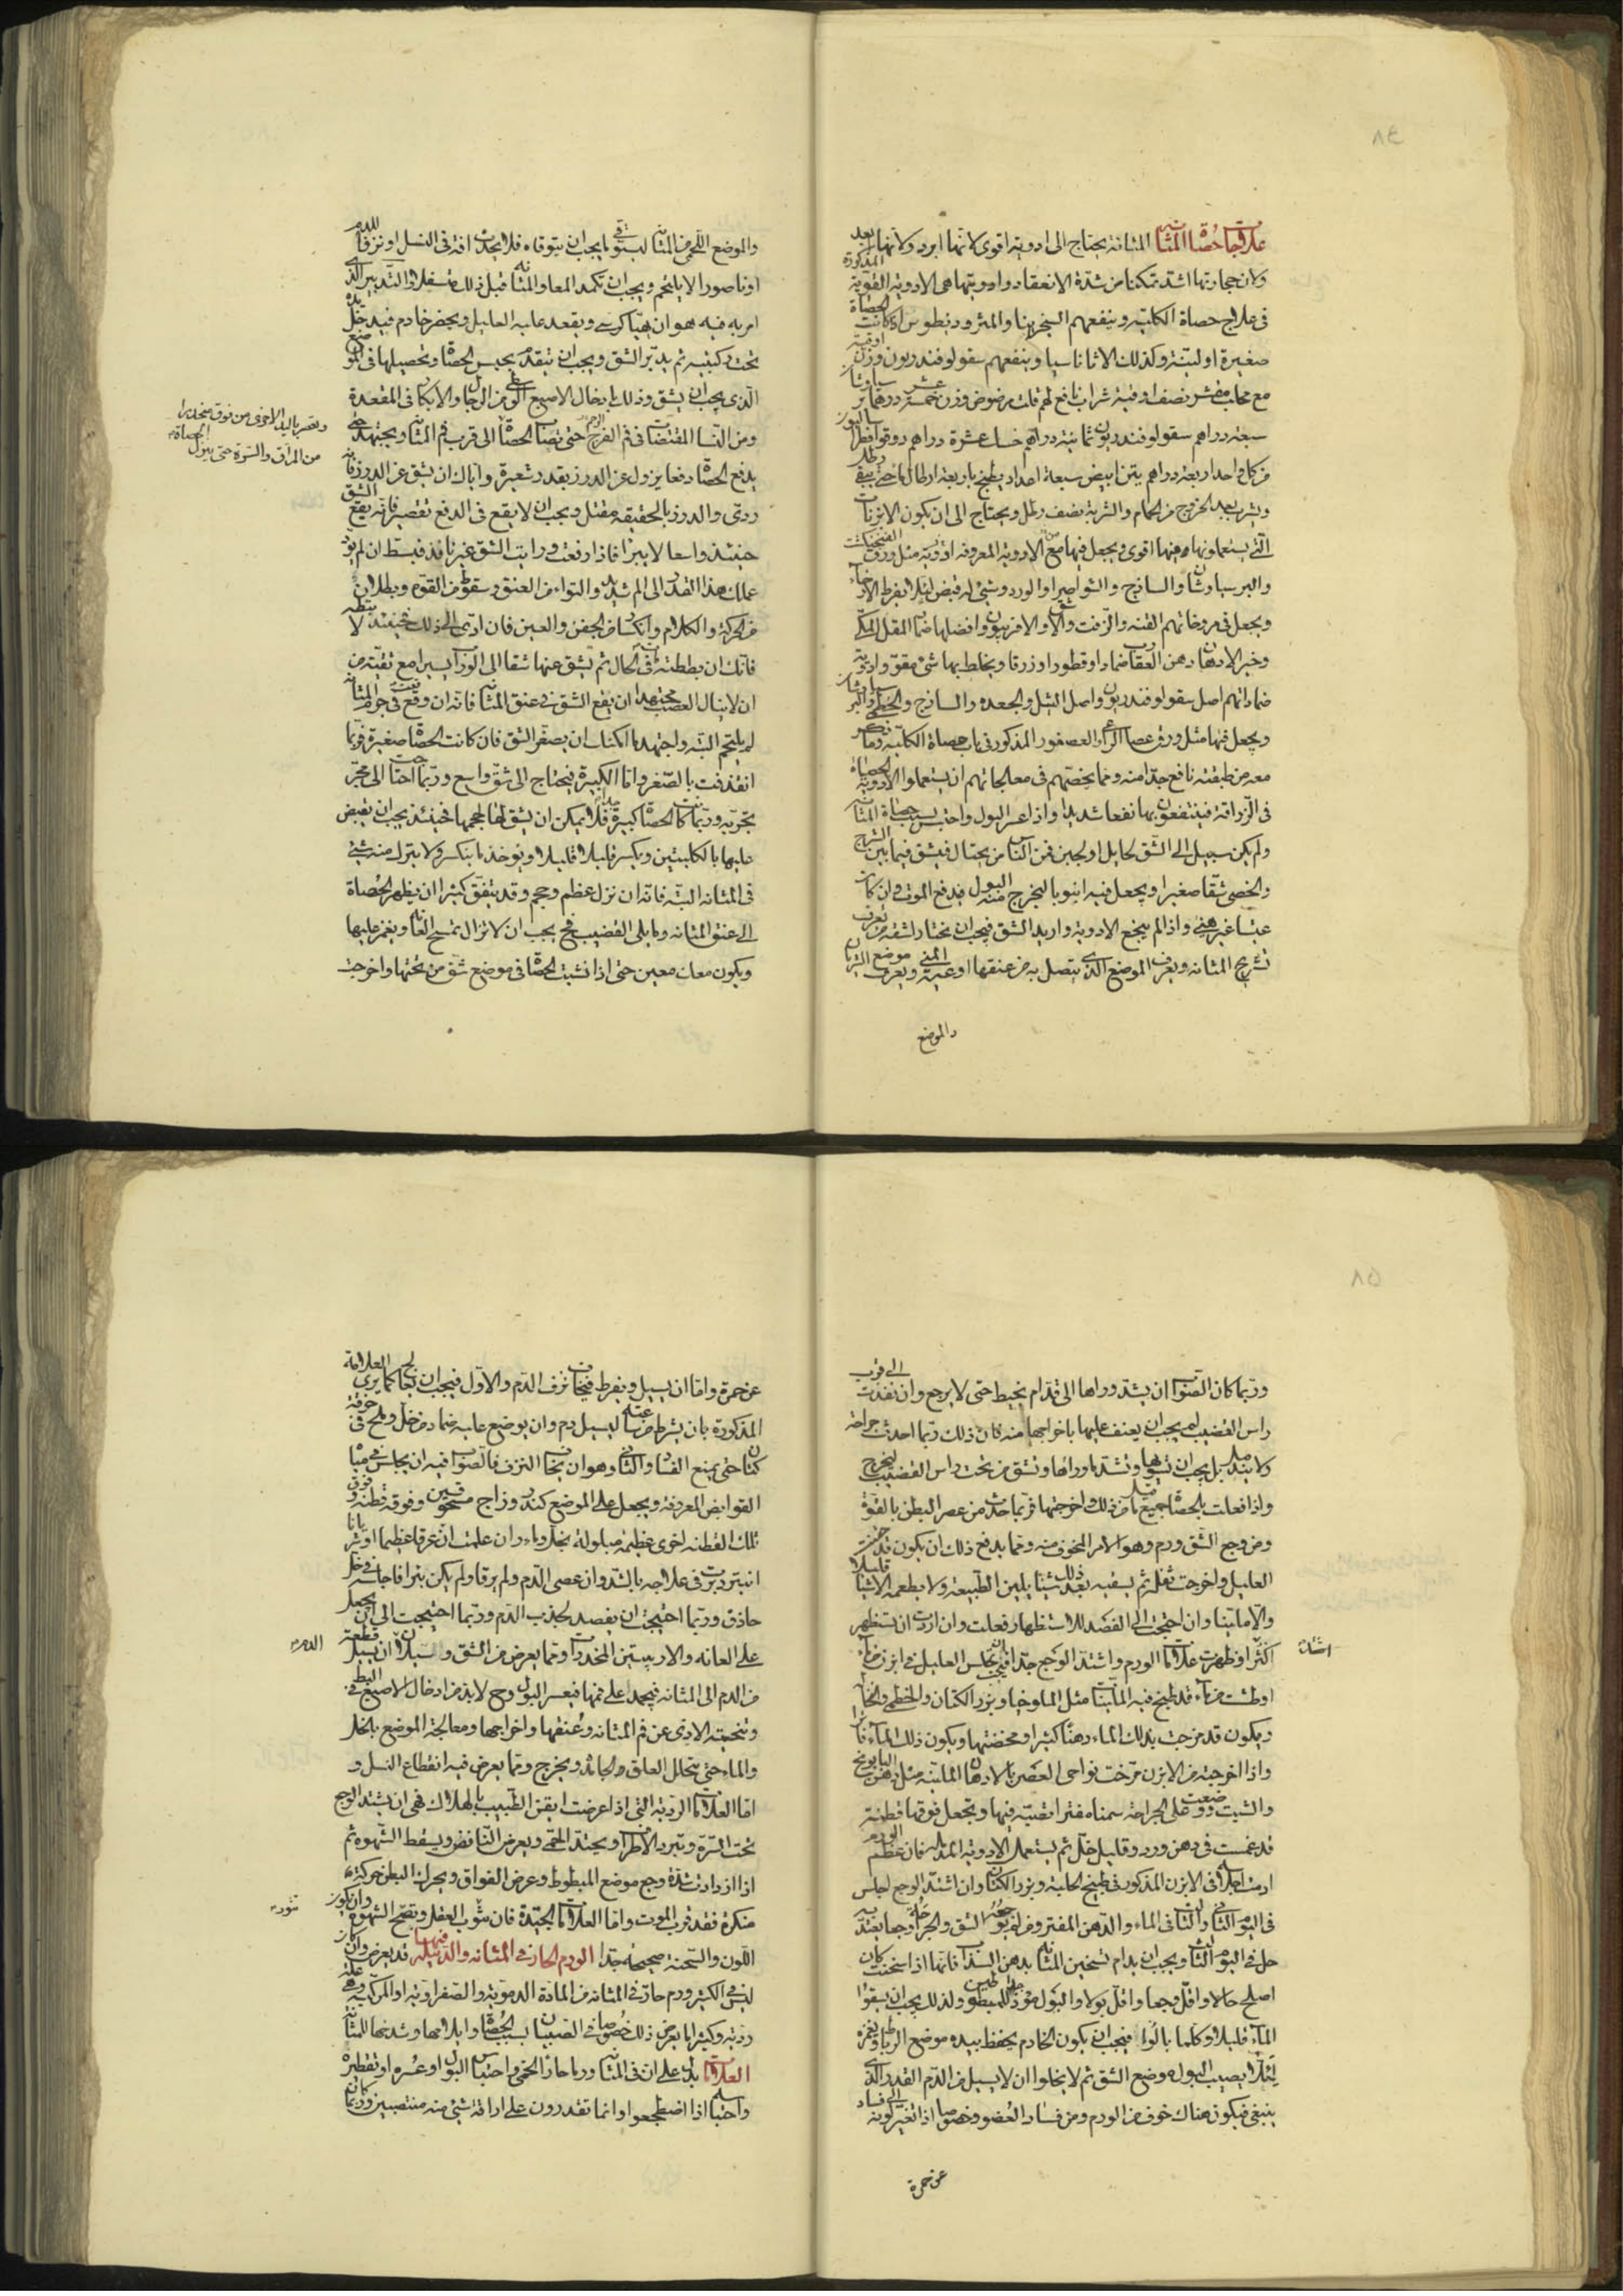 ٨٤
علاجات حصاة المثانة المثانة يحتاج الى ادوية اقوى لانها ابرد ولانها ابعد
ولان حجارتها اشد تمكنا من شدة الانعقاد وادويتها هى الادوية القوية المذكورة
فى علاج حصاة الكلية وينفعهم السجزينا والمثروديطوس اذا كانت الحصاة
صغيرة او لينة وكذلك الاثاناسيا وينفعهم سقولوفندريون وزن اوقية
مع نصف اوقية شراب نافع لهم فلت مرضوض وزن خمسة عشر درهما
سبعة دراهم سقولوفندريون ثمانية دراهم عشرة دراهم دوقو
من كل واحد اربعة دراهم تين ابيض سبعة اعداد يطبخ باربعة ارطال ماء حتى يبقى رطل
ويشرب بعد الخروج من الحمام والشربة نصف رطل ويحتاج الى ان يكون الابزنات
التى يستعملونها منها اقوى ويجعل فيها مع الادوية المعروفة ادوية مثل ورق الفنجنكشت
والبرسياوشان والساذج والشواصرا والورد وشىء له قبض لئلا يفرط الارخاء
ويجعل فى مروخاتهم القنة والزفت والاشق والافربيون وافضلها ضماد المقل المكى
وخير الادهان دهن العقارب ضمادا وقطورا وزرقا ويخلط بها شىء مقو وادوية
ضماداتهم اصل سقولوفندريون واصل الثيل والجعدة والساذج والخطمى والبرسياوشان
ويجعل فيها مثل ورق عصا الراعى العصفور المذكور فى باب حصاة الكلية وما
معه من طبقته نافع جدا منه ومما يخصهم فى معالجاتهم ان يستعملوا الادوية الحصاة
فى الزراقة فينتفعون بها نفعا شديدا واذا عسر البول واحتبس بسبب حصاة المثانة
ولم يكن سبيل الى الشق لحايل او لجبن فمن الناس من يحتال فيشق فيما بين الشرج
والخصى شقا صغيرا ويجعل فيه انبوبا ليخرج منه البول فيدفع الموت وان كان
عيشا غير هنى واذا لم ينجع الادوية واريد الشق فيجب ان يختار لشقه من يعرف
تشريح المثانة ويعرف الموضع الذى يتصل به من عنقها اوعية المنى ويعرف موضع الشريان
والموضع
والموضع اللحمى من المثانة ليتوقى ما يجب ان يتوقاه فلا يحدث افة فى النسل او نزفا للدم
او ناصورا لا يلتحم ويجب ان تكمد المعا والمثانة قبل ذلك متسفلا والتدبير الذى
امر به فيه هو ان يهيا كرسى ويقعد عليه العليل ويحضر خادم فيدخل يده
تحت ركبتيه ثم يدبر الشق ويجب ان يتقدم بحبس الحصاة وتحصيلها فى الموضع
الذى يجب ان يشق وذلك بادخال الاصبع الوسطى من الرجال والابكار فى المقعدة
ومن النساء المفتضات فى فم الفرج حتى تصاب الحصاة الى قرب فم المثانة ويجتهد حتى
ويعصر باليد الاخرى من فوق منحدرا
من المراق والسرة حتى ينزل الحصاة
يدفع الحصاة دفعا يزول عن الدرز بقدر شعيرة واياك ان يشق عن الدرز فانه
ردى والدرز بالحقيقة مقتل ويجب ان لا يقع فى الدفع تقصير فانه يقع الشق
حينئذ واسعا لا يبرا فاذا دفعت ورايت الشق غير نافذ فبسط ان لم يود
عملك هذا القدر الى الم شديد والتواء من العنق وسقوط من القوة وبطلان
من الحركة والكلام وانكسار من الجفن والعين فان ادى الى ذلك فحينئذ لا تبطه
فانك ان بططته مات فى الحال ثم يشق عنها شقا الى الوراب يسيرا مع تقية من
ان لا ينال العصب مجتهدا ان يقع الشق فى عنق المثانة فانه ان وقع فى جرم المثانة
لم يلتحم البتة واجتهد ما امكنك ان يصغر الشق فان كانت الحصاة صغيرة فربما
انقذفت بالعصر واما الكبيرة فيحتاج الى شق واسع وربما احتاجت الى مجر
يجريه وربما كانت الحصاة كبيرة جدا فلا يمكن ان يشق لها لحجمها فحينئذ يجب ان يقبض
عليها بالكلبتين ويكسر قليلا قليلا ويوخذ ما ينكسر ولا يترك منه شىء
فى المثانة البتة فانه ان نزل عظم وحجم وقد يتفق كثيرا ان يظهر الحصاة
الى عنق المثانة وما يلى القضيب فح يجب ان لا تزال تمسح العانة ويغمز عليها
ويكون معك معين حتى اذا نشبت الحصاة فى موضع شق من تحتها واخرجت
٨٥
وربما كان الصواب ان يشد وراءها الى قدام بخيط حتى لا يرجع وان نفذت الى قرب
راس القضيب لم يجب ان يعنف عليها باخراجها منه فان ذلك ربما احدث جراحة
لا يندمل بل يجب ان تسويها وتشد ما وراءها وتشق من تحت راس القضيب ليخرج
واذا فعلت بالحصاة جميع ما قيل من ذلك واخرجتها فربما حدث من عصر البطن بالقوة
ومن وجع الشق ورم وهو الامر المخوف منه ومما يدفع ذلك ان يكون قد حقنت
العليل واخرجت ثفله ثم يسقيه بعد ذلك شيئا يلين الطبيعة ولا يطعمه الا شيئا قليلا
والا ملينا وان احتجت الى الفصد للاستظهار فعلت وان اردت ان تستظهر
اكثر او ظهرت علامات الورم واشتد الوجع جدا فيجب ان تجلس العليل فى ابزن من ماء
او طشت من ماء قد طبخ فيه الملينات مثل الملوخيا وبزر الكتان والخطمى والنخالة
ويكون قد مزجت بذلك الماء دهنا كثيرا ومخضتهما ويكون ذلك الماء فاترا
واذا اخرجته من الابزن مرخت نواحى العضو بالادهان الملينة مثل دهن البابونج
والشبت ووضعت على الجراحة سمنا مفترا تصبه فيها ويجعل فوقها قطنة
قد غمست فى دهن ورد وقليل خل ثم يستعمل الادوية المدملة فان عظم الورم
ادمت اجلاسه فى الابزن المذكور فى طبيخ الحلبة وبزر الكتان وان اشتد الوجع اجلس
فى اليوم الثانى والثالث فى الماء والدهن المفتر ومن لم يوجعه الشق والجراحة وجعا يعتد به
حل فى اليوم الثالث ويجب ان يدام تسخين المثانة بدهن السذاب فانها اذا سخنت كان
اصلح حالا واقل وجعا واقل بولا والبول موذ جدا للمبطوطين ولذلك يجب ان يسقوا
الماء قليلا وكلما بالوا فيجب ان يكون الخادم يحفظ بيده موضع الرباط ويغمزه
لئلا يصيب البول موضع الشق ثم لا يخلو اما ان لا يسيل من الدم القدر الذى
ينبغى فيكون هناك خوف من الورم ومن فساد العضو وخصوصا اذا تغير لونه الى فساد
عن حمرة
عن حمرة واما ان يسيل ويفرط فيخاف نزف الدم والاول فيجب ان يعالج كما يرى العلامة
المذكورة بان يشرط عنه ليسيل دم وان يوضع عليه ضماد من خل وملح فى خرقة
كتان حتى يمنع الفساد والثانى وهو ان يخاف النزف فالصواب فيه ان يجلس فى مياه
القوابض المعروفة ويجعل على الموضع كندر وزاج مسحوقين وفوقه قطنة وفوق
تلك القطنة اخرى عظيمة مبلولة بخل وماء وان علمت ان عرقا عظيما او شريانا
انبتر دبرت فى علاجه بالشد وان عصى الدم ولم يرقا ولم يكن بترا فاجلسه فى خل
حاذق وربما احتجت ان يفصد لجذب الدم وربما احتيجت الى ان يجعل
على العانة والاربيتين المخدرات ومما يعرض من الشق والسيلان ان يسيل قطعة
من الدم الى المثانة فيجمد على فمها فيعسر البول وح لابد من ادخال الاصبع فى البط
وتنحية الاذى عن فم المثانة وعنقها واخراجها ومعالجة الموضع بالخل
والماء حتى يتحلل العلق والجامد ويخرج ومما يعرض فيه انقطاع النسل و
اما العلامات الردية التى اذا عرضت ايقن الطبيب بالهلاك فهى ان يشتد الوجع
تحت السرة وتبرد الاطراف ويحتد الحمى ويعرض النافض ويسقط الشهوة ثم
اذا ازدادت شدة وجع موضع المبطوط وعرض الفواق ويحرك البطن حركة
منكرة فقد قرب الموت واما العلامات الجيدة فان يثوب العقل وتصح الشهوة وان يكون
اللون والسحنة صحيحة جدا الورم الحار فى المثانة والدبيلة فيها قد يعرض وان كان
ليس فى الكثير ورم حار فى المثانة من المادة الدموية والصفراوية او المركبة وهى علة
ردية وكثيرا ما يعرض ذلك خصوصا فى الصبيان بسبب الحصاة وايلامها وشدخها للمثانة
العلامات يدل على ان فى المثانة ورما حارا الحمى واحتباس البول او عسره او تقطيره
واحتباسه اذا اضطجعوا وانما تقدرون على اراقة شىء منه منتصبين وربما كان